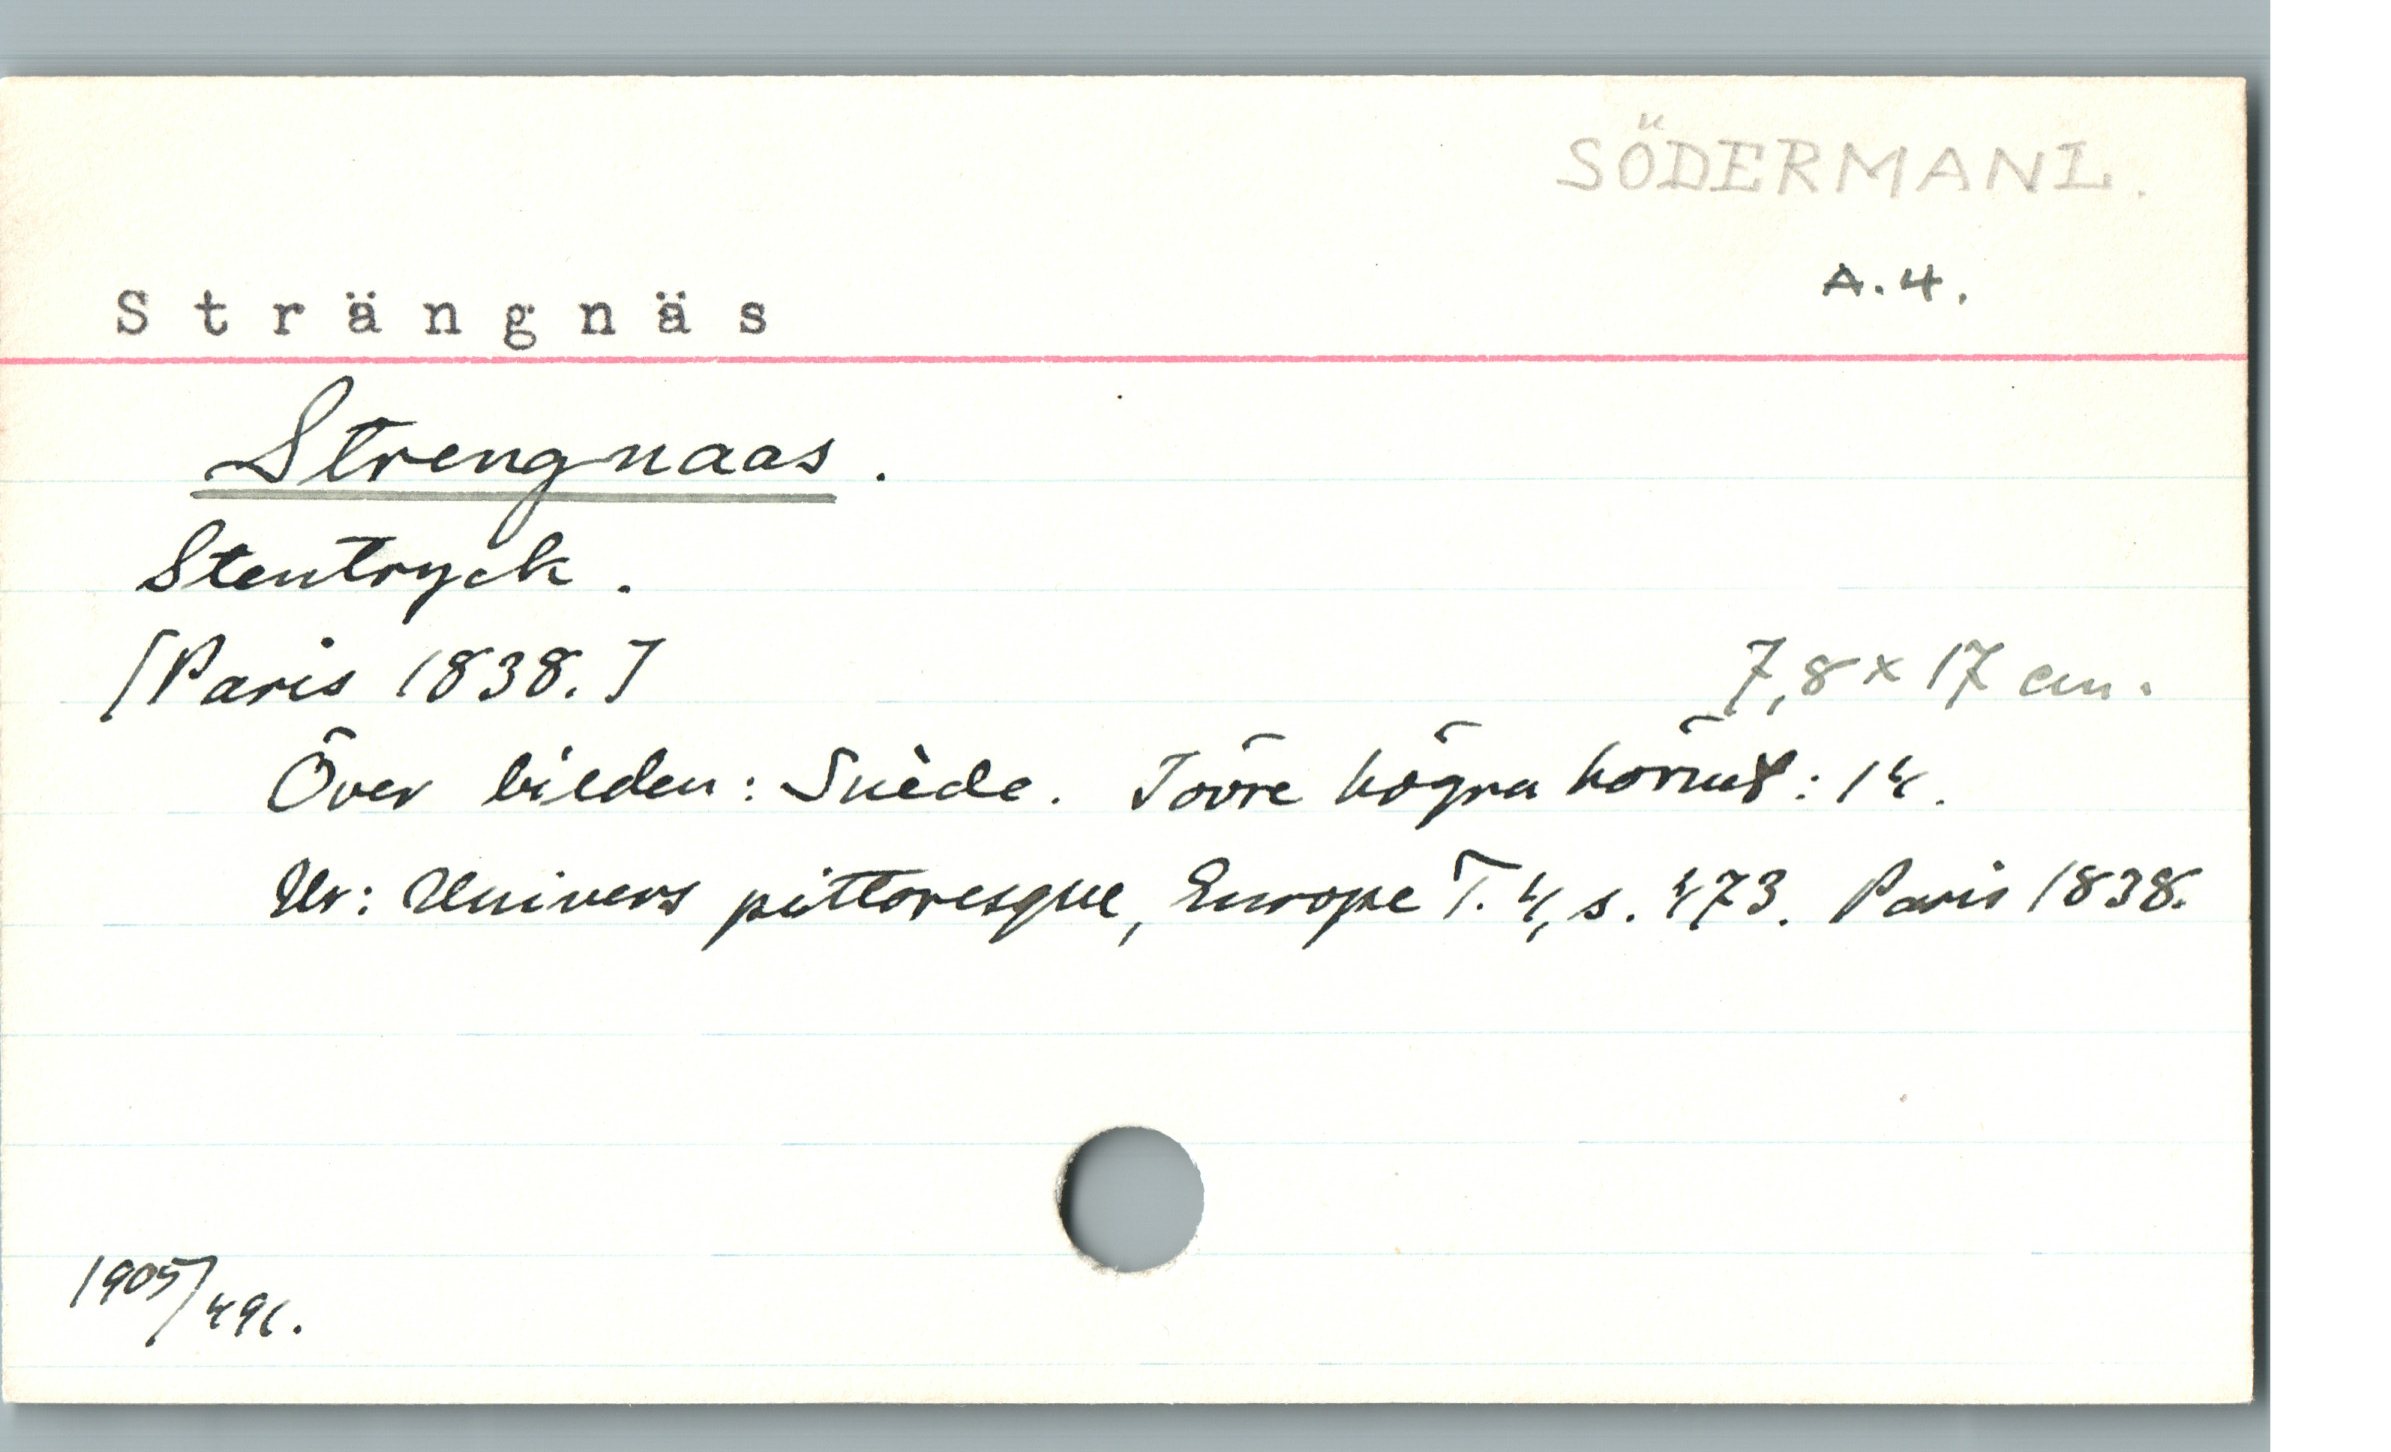 SÖDERMANL.
A.4.
Strängnäs
Strengnaas.
Stentryck.
[Paris 1838.]
7,8 x 17 cm.
Över bilden: Suède. I övre högra hörnet: 14.
Ur: Univers pittoresque, Europe T. 4, s. 473. Paris 1838.
1905/491.